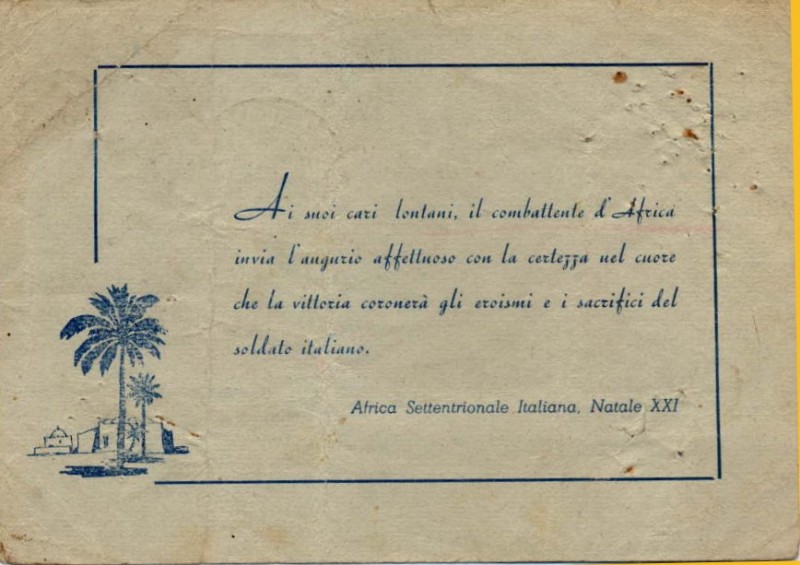 Ai suoi cari lontani, il combattente d'Africa
invia l'augurio affettuoso con la certezza nel cuore
che la vittoria coronerà gli eroismi e i sacrifici del
soldato italiano.
Africa Settentrionale Italiana, Natale XXI